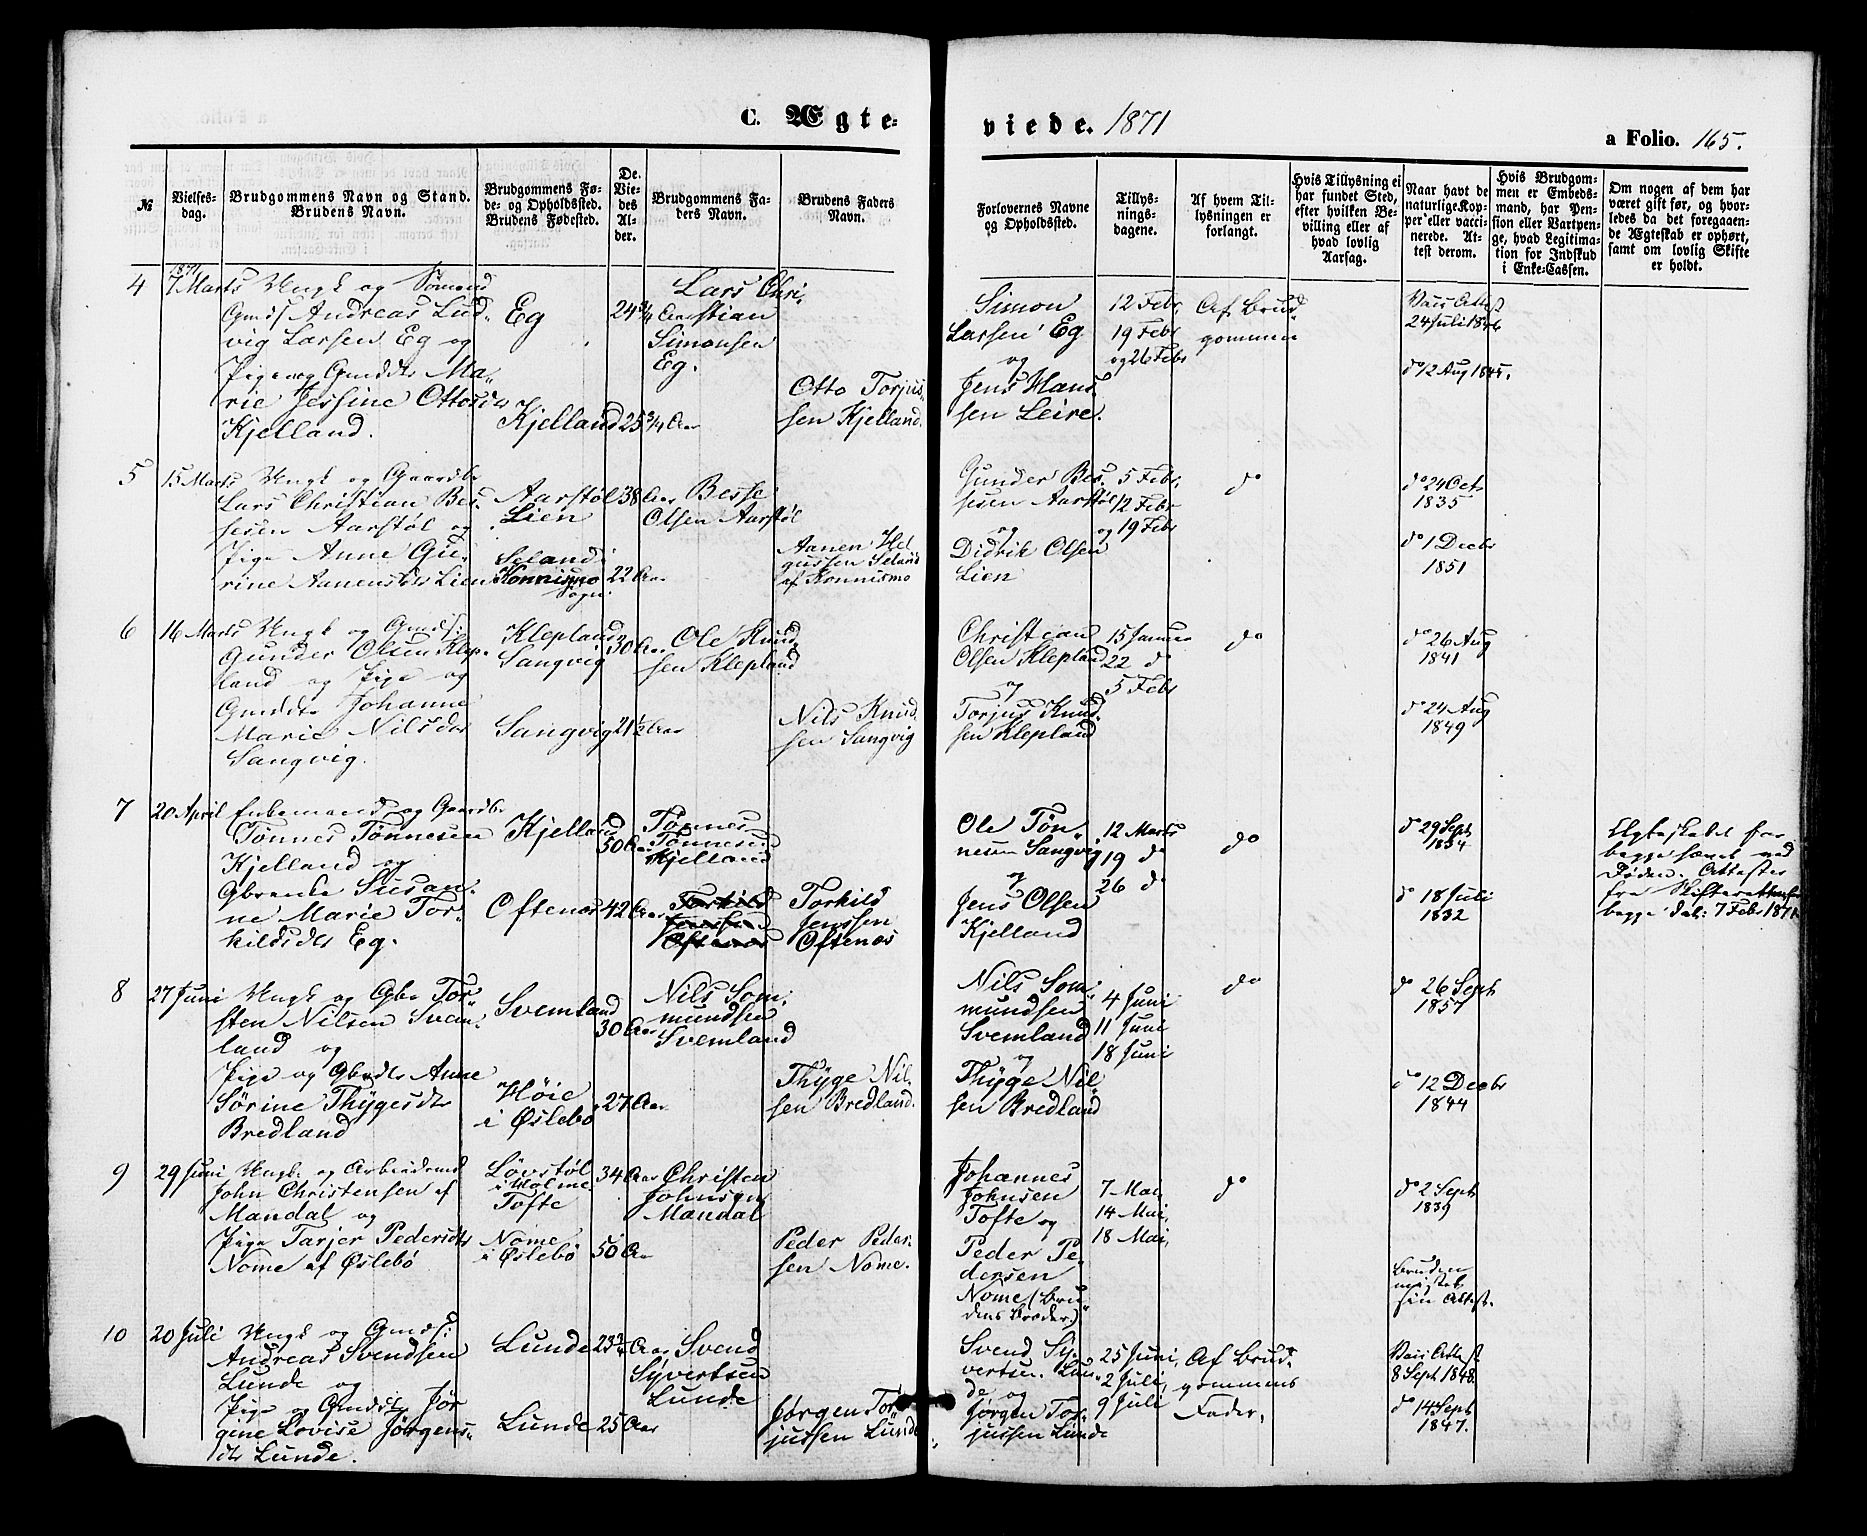 C. Ægte-
viede. 1871
a Folio. 165.
№
Vielses-
dag.
Brudgommens Navn og Stand.
Brudens Navn.
Brudgommens Fø-
de- og Opholdssted.
Brudens Fødested.
De
Vie-
des
Al-
der.
Brudgommens Fa-
ders Navn.
Brudens Faders
Navn.
Forlovernes Navne
og Opholdssted.
Tillys-
nings-
dagene.
Af hvem Til-
lysningen er
forlangt.
Hvis Tillysning ei
har fundet Sted,
efter hvilken Be-
villing eller af
hvad lovlig
Aarsag.
Naar havt de
naturlige Kop-
per eller vacci-
nerede. At-
test derom.
Hvis Brudgom-
men er Embeds-
mand, har Pen-
sion eller Vartpen-
ge, hvad Legitima-
tion for Indskud
i Enke-Cassen.
Om nogen af dem har
været gift før, og hvor-
ledes da det foregaaen-
de Ægteskab er ophørt,
samt om lovlig Skifte
er holdt.
4
1871
7 Marts
Ungk og Sømand
Gmdss Andreas Lud-
vig Larsen Eg og
Pige og Gmddtr Ma-
rie Jessine Ottosdtr
Kjelland.
Eg
Kjelland
24 3/4 Aar
25 3/4 Aar
Lars Chri-
stian
Simonsen
Eg.
Otto Torjus-
sen Kjelland.
Simon
Larsen Eg
og
Jens Hans-
sen Leire.
12 Febr,
19 Febr
og 26 Febr
Af Brud-
gommen
Vacc. Attest
24 Juli 1846
do 12 Aug 1845.
5
15 Marts
Ungk og Gaardbr
Lars Christian Bes-
sesen Aarstøl og
Pige Anne Gu-
rine Aanensdtr Lien
Aarstøl
Lien
Seland i
Konnismo
Sogn.
38 Aar
22 Aar
Besse
Olsen Aarstøl
Aanen Hel-
gussen Seland
af Konnismo
Gunder Bes-
sesen Aarstøl
og
Didrik Olsen
Lien
5 Febr,
12 Febr
og 19 Febr
do
do 24 Oct
1835
do 1 Decbr
1851
6
16 Marts
Ungk og Gmdss:
Gunder Olsen Klep-
land og Pige og
Gmddtr Johanne
Marie Nilsdtr
Sangvig.
Klepland
Sangvig
Sangvig
30 Aar
21 1/2 Aar
Ole Knud-
sen Klepland
Nils Knud-
sen Sangvig
Christian
Olsen Klepland
og
Torjus Knud-
sen Klepland
15 Januar
22 do
5 Febr
do
do 26 Aug
1841
do 24 Aug
1849
7
20 April
Enkemand og Gaardbr
Tønnes Tønnesen
Kjelland og
Gbrenke Susan-
ne Marie Tor-
kildsdtr Eg.
Kjelland
Oftenæs
50 Aar
42 Aar
Tønnes
Tønnesen
Kjelland
Torkild
Jenssen
Oftenæs
Torkild
Jenssen
Oftenæs
Ole Tøn-
nesen Sangvig
og
Jens Olsen
Kjelland
12 Marts
19 do
26 do
do
do 29 Sept
1834
do 18 Juli
1832
Ægteskabet for
begge hævet ved
Døden. Attester
fra Skifteretten for
begge dat: 7 Febr 1871
8
27 Juni
Ungk og Gbr Tor-
sten Nilsen Svem-
land og
Pige og Gbrdtr Anne
Sørine Thygesdtr
Bredland
Svemland
Høie
i Øslebø
30 Aar
27 Aar
Nils Som-
mundsen
Svemland
Thyge Nil-
sen Bredland.
Nils Som-
mundsen
Svemland
og
Thyge Nil-
sen Bredland
4 Juni
11 Juni
18 Juni
do
do 26 Sept
1857
do 12 Decbr
1844
9
29 Juni
Ungk og Arbeidsmd
John Christensen af
Mandal og
Pige Tarjer Pedersdtr
Nome af Øslebø
Løvstøl
i Holme
Tofte
Nome
i Øslebø
34 Aar
50 Aar
Christen
Johnsen
Mandal
Peder Peder-
sen Nome.
Johannes
Johnsen
Tofte og
Peder Pe-
dersen
Nome (Bru-
dens Broder)
7 Mai,
14 Mai,
18 Mai,
do
do 2 Sept
1839
Bruden
mistet
sin Attest.
10
20 Juli
Ungk og Gmdss:
Andreas Svendsen
Lunde og
Pige og Gmdsdtr Jør-
gine Lovise Jørgens-
dtr Lunde.
Lunde
Lunde
23 3/4 Aar
25 Aar
Svend
Syvertsen
Lunde
Jørgen Tor-
jussen Lunde
Svend Sy-
vertsen Lun-
de, og
Jørgen Tor-
jussen Lunde
25 Juni,
2 Juli,
9 Juli
Af Brud-
gommens
Fader,
Vacc. Attest
8 Sept 1848.
do 14 Sept
1847.